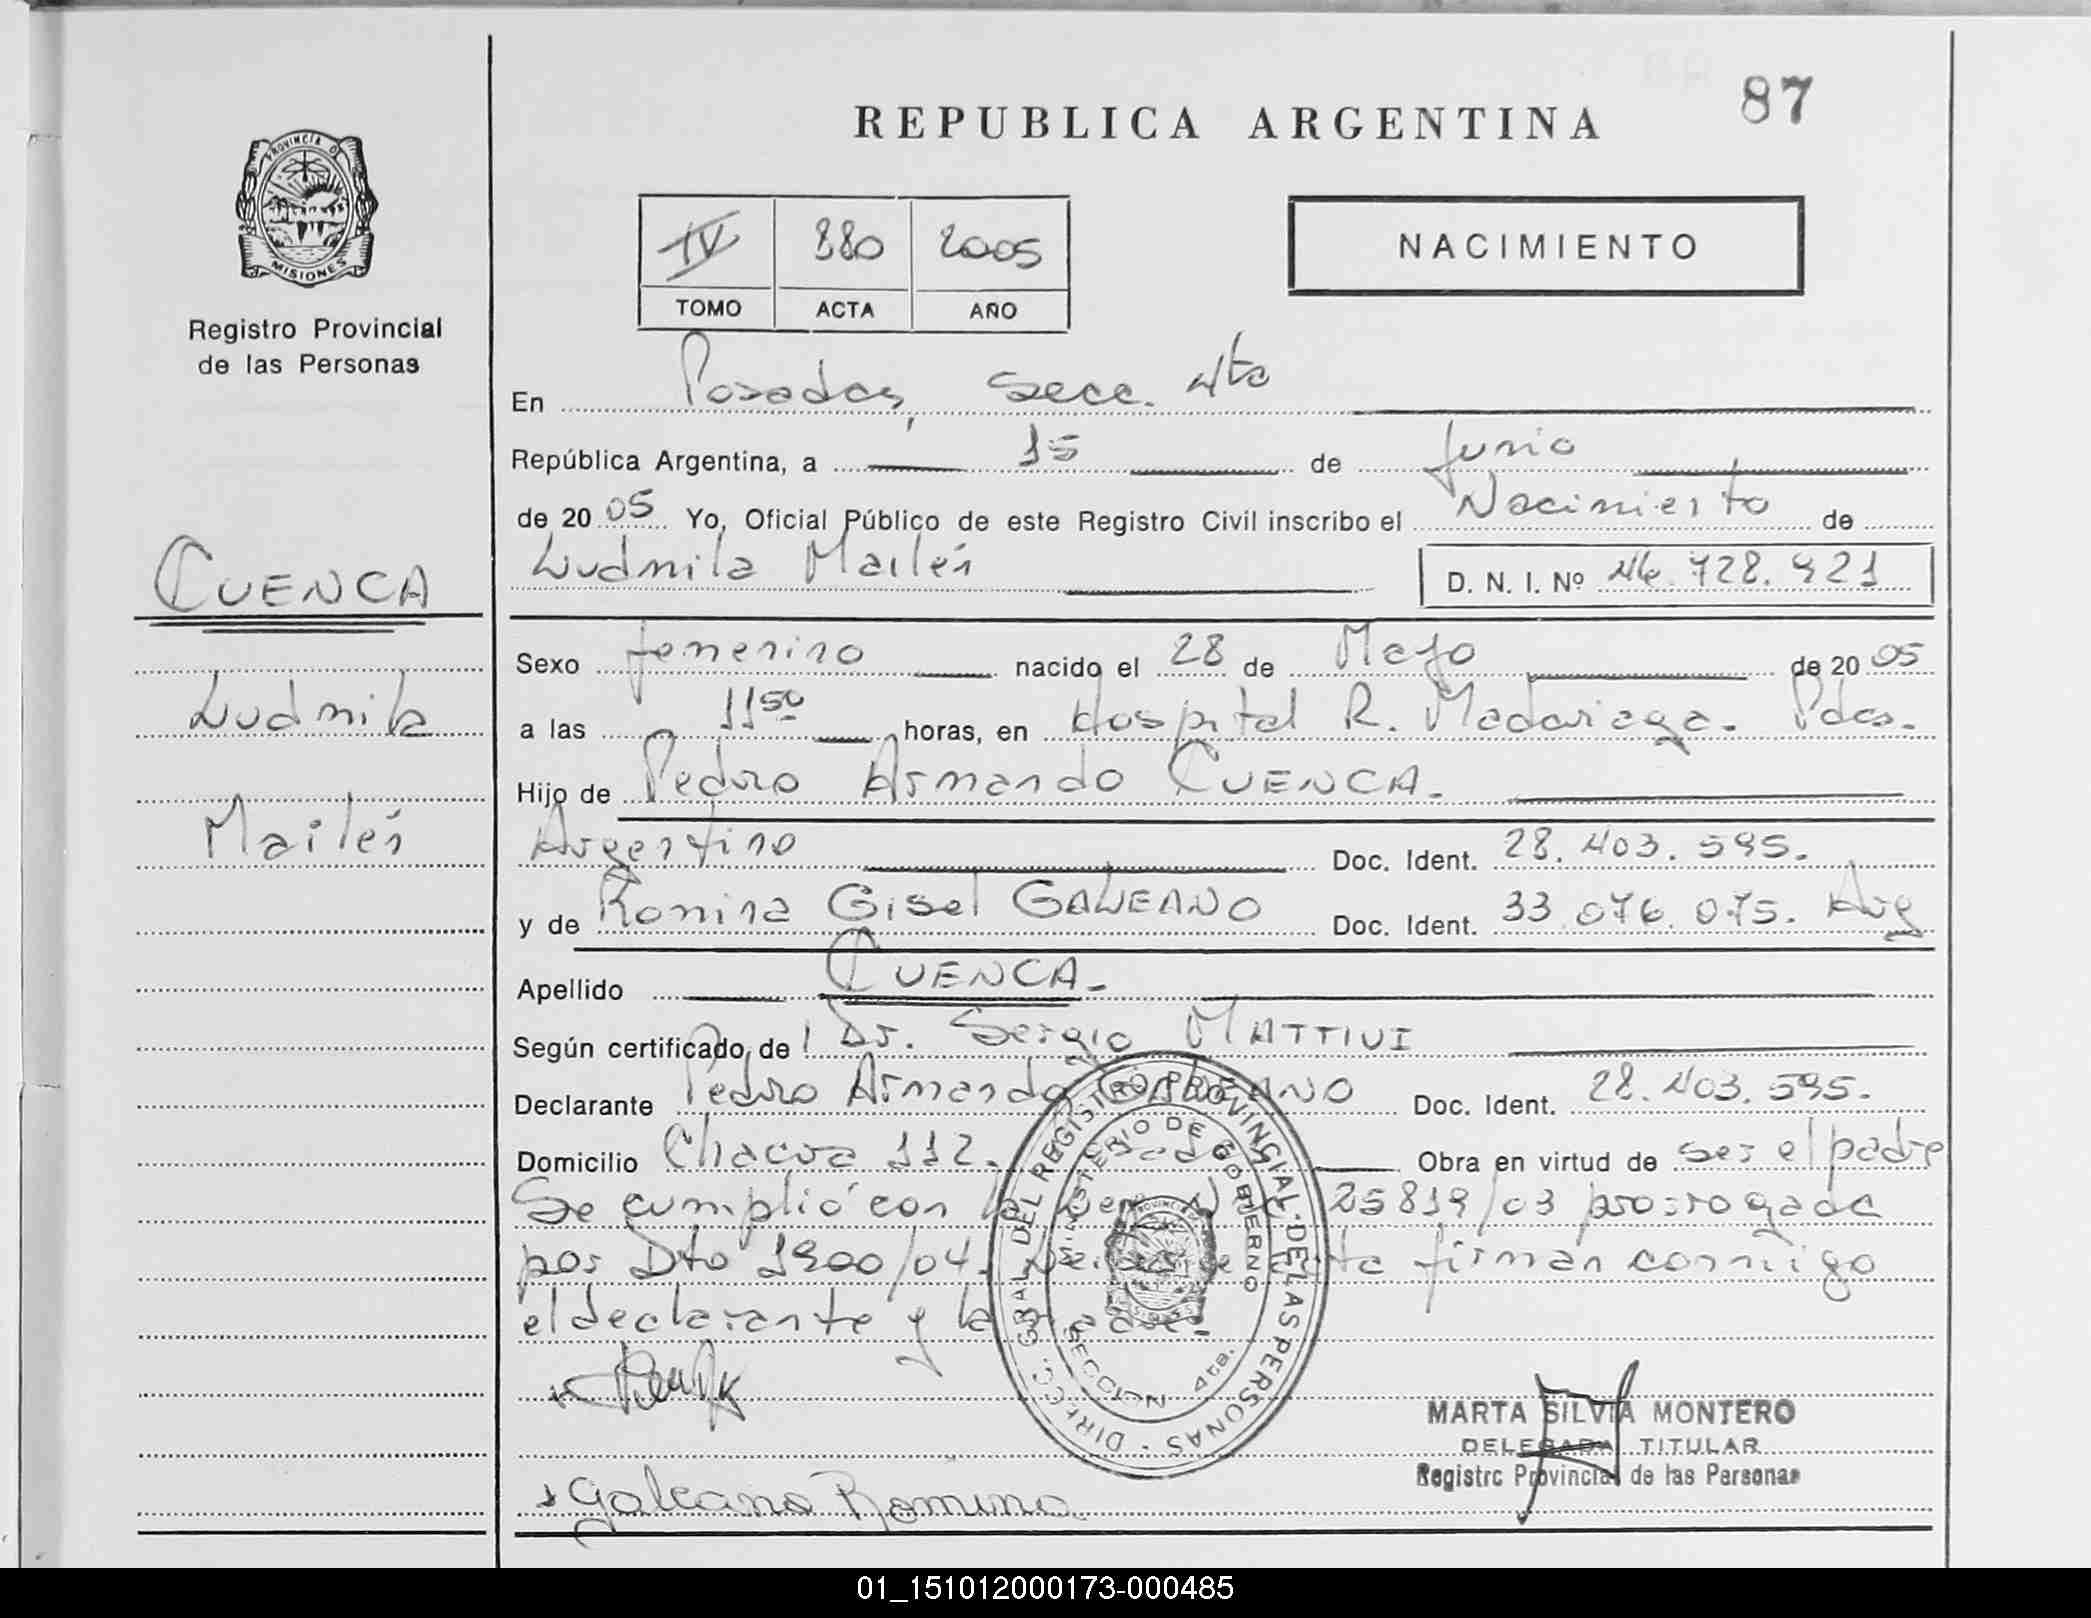 87
REPUBLICA ARGENTINA
PROVINCIA DE
MISIONES
Registro Provincial
de las Personas
IV 880 2005
TOMO ACTA AÑO
NACIMIENTO
En Posadas, Secc. 4ta
República Argentina, a 15 de Junio
de 2005 Yo, Oficial Público de este Registro Civil inscribo el Nacimiento de
Ludmila Mailén D. N. I. Nº 46.728.921
CUENCA
Ludmila
Mailén
Sexo femenino nacido el 28 de Mayo de 2005
a las 11 50 horas, en Hospital R. Madariaga. Pdas.
Hijo de Pedro Armando CUENCA.
Argentino Doc. Ident. 28.403.595.
y de Romina Gisel GALEANO Doc. Ident. 33.076.075. Arg
Apellido CUENCA.
Según certificado de Dr. Sergio MATTIVI
Declarante Pedro Armando GALEANO Doc. Ident. 28.403.595.
Domicilio Chacra 112. Obra en virtud de ser el padre
Se cumplió con la 25819/03 prorrogada
por Dto 1900/04. firman conmigo
el declarante y la madre.
DIRECC. GRAL. DEL REGISTRO PROVINCIAL DE LAS PERSONAS
MINISTERIO DE GOBIERNO
SECCION 4ta.
MARTA SILVIA MONTERO
DELEGADA TITULAR
Registro Provincial de las Personas
Galeano Romina
01_151012000173-000485